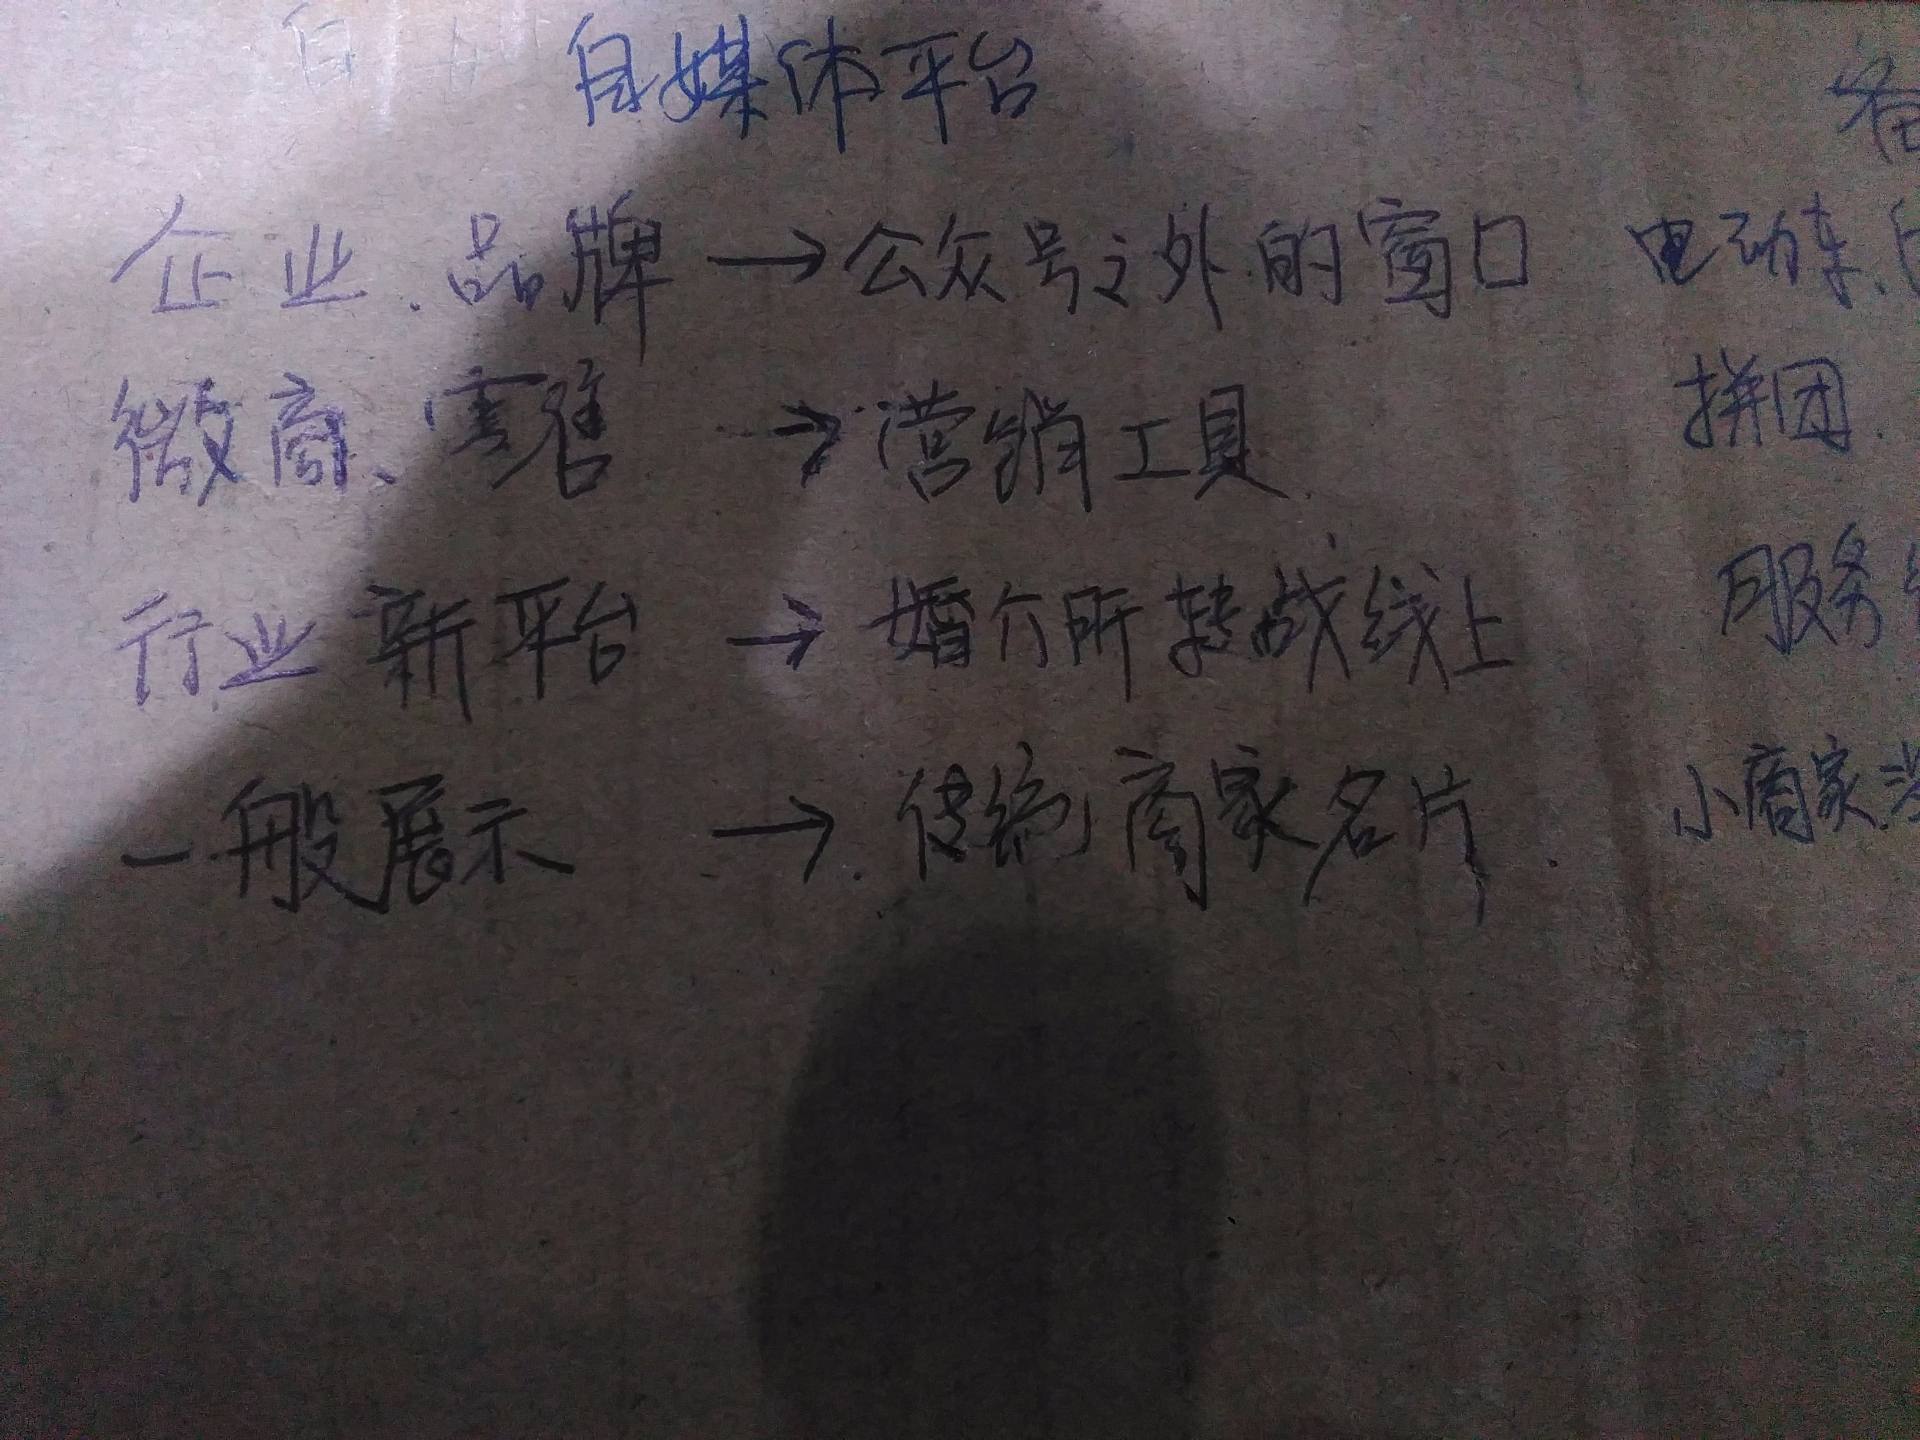 自媒体平台
企业、品牌 → 公众号之外的窗口 电动车、
微商、零售 → 营销工具 拼团
行业新平台 → 婚介所转战线上 服务
一般展示 → 传统商家名片 小商家